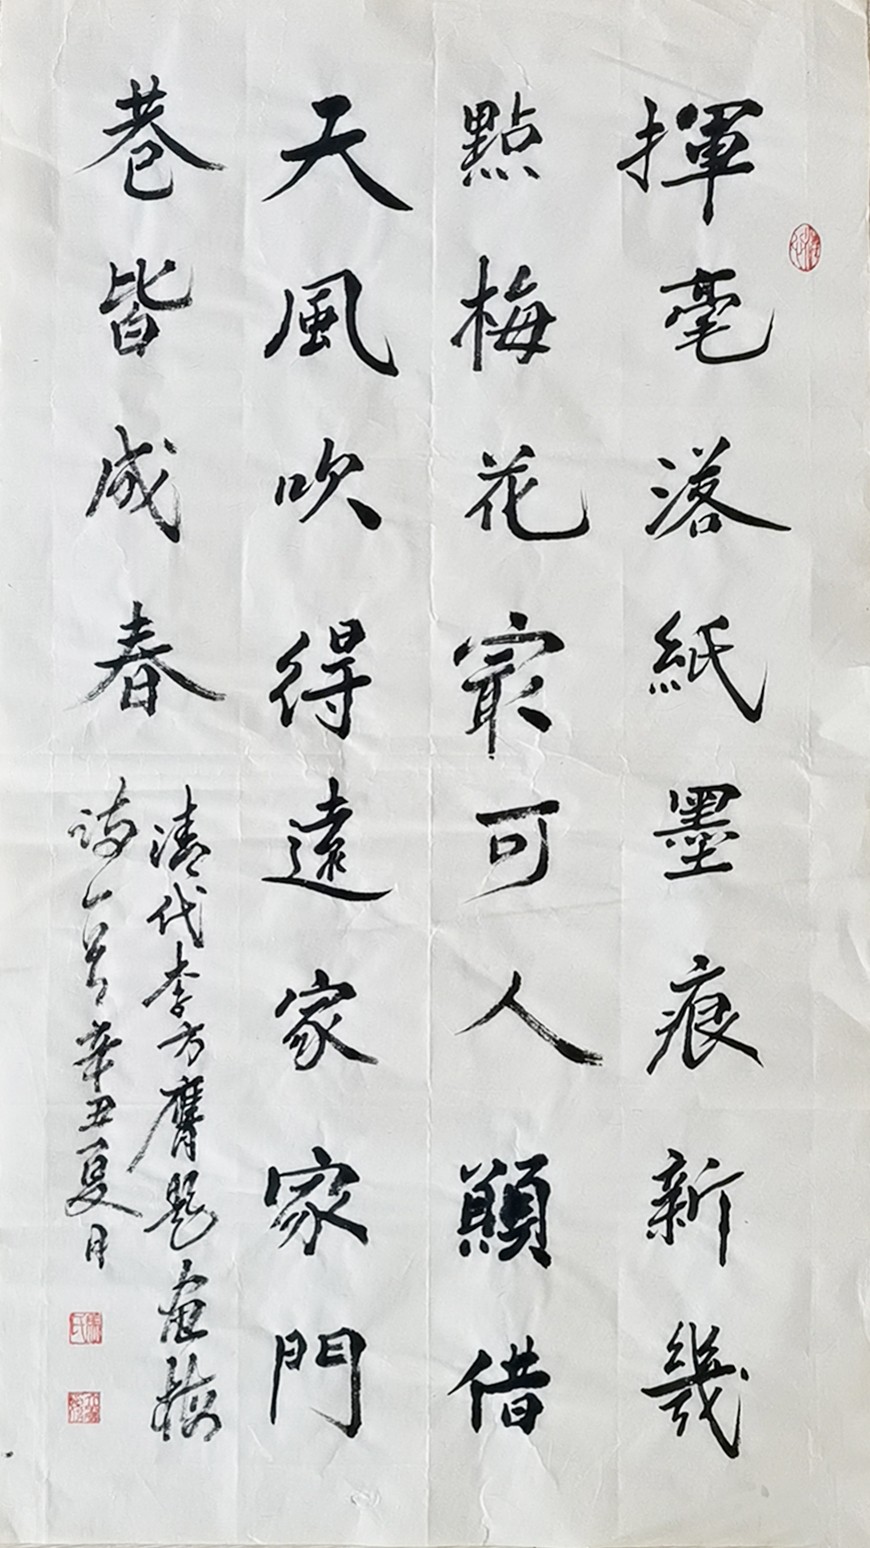 揮毫落紙墨痕新幾
點梅花冣可人願借
天風吹得遠家家門
巷皆成春
清代李方膺題画梅
詩一首辛丑夏月